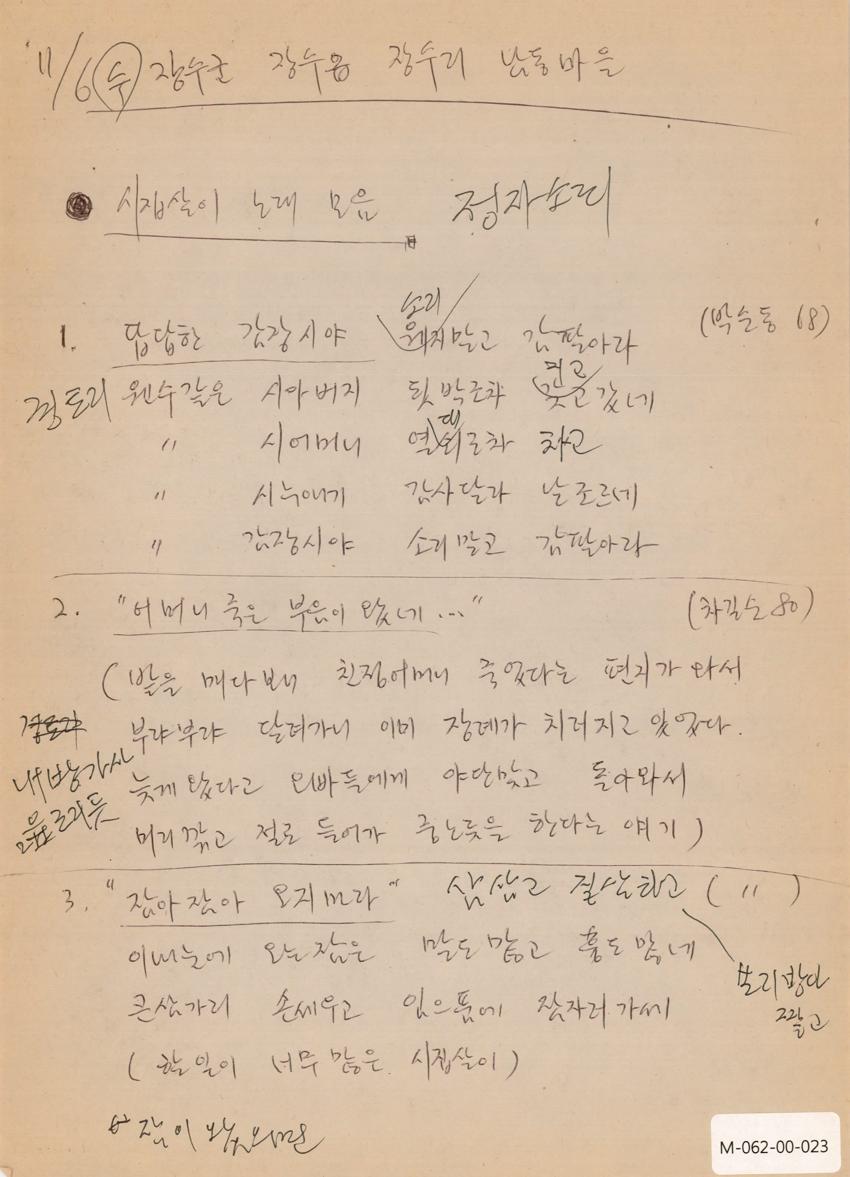 11/6 (수) 장수군 장수읍 장수리 남동마을
시집살이 노래 모음 정자소리
1. 답답한 감장시야 소리 말고 감팔아라 (박순동 68)
경토리 웬수같은 시아버지 뒷박조차 갖고갔네
〃 시어머니 열대조차 차고
〃 시누애기 감사달라 날조르네
〃 감장시야 소리말고 감팔아라
2. "어머니 죽은 부음이 왔네..." (차길순 80)
(밭을 매다보니 친정어머니 죽었다는 편지가 와서
부랴부랴 달려가니 이미 장례가 치러지고 있었다.
늦게 왔다고 오빠들에게 야단맞고 돌아와서
머리깎고 절로 들어가 중노릇을 한다는 얘기)
3. "잠아잠아 오지마라" 삼삼고 질삼하고 (〃)
이내눈에 오는잠은 말도많고 흉도많네
보리방다
찧고
큰삼가리 손세우고 임으품에 잠자러가세
(할일이 너무많은 시집살이)
잠이
M-062-00-023